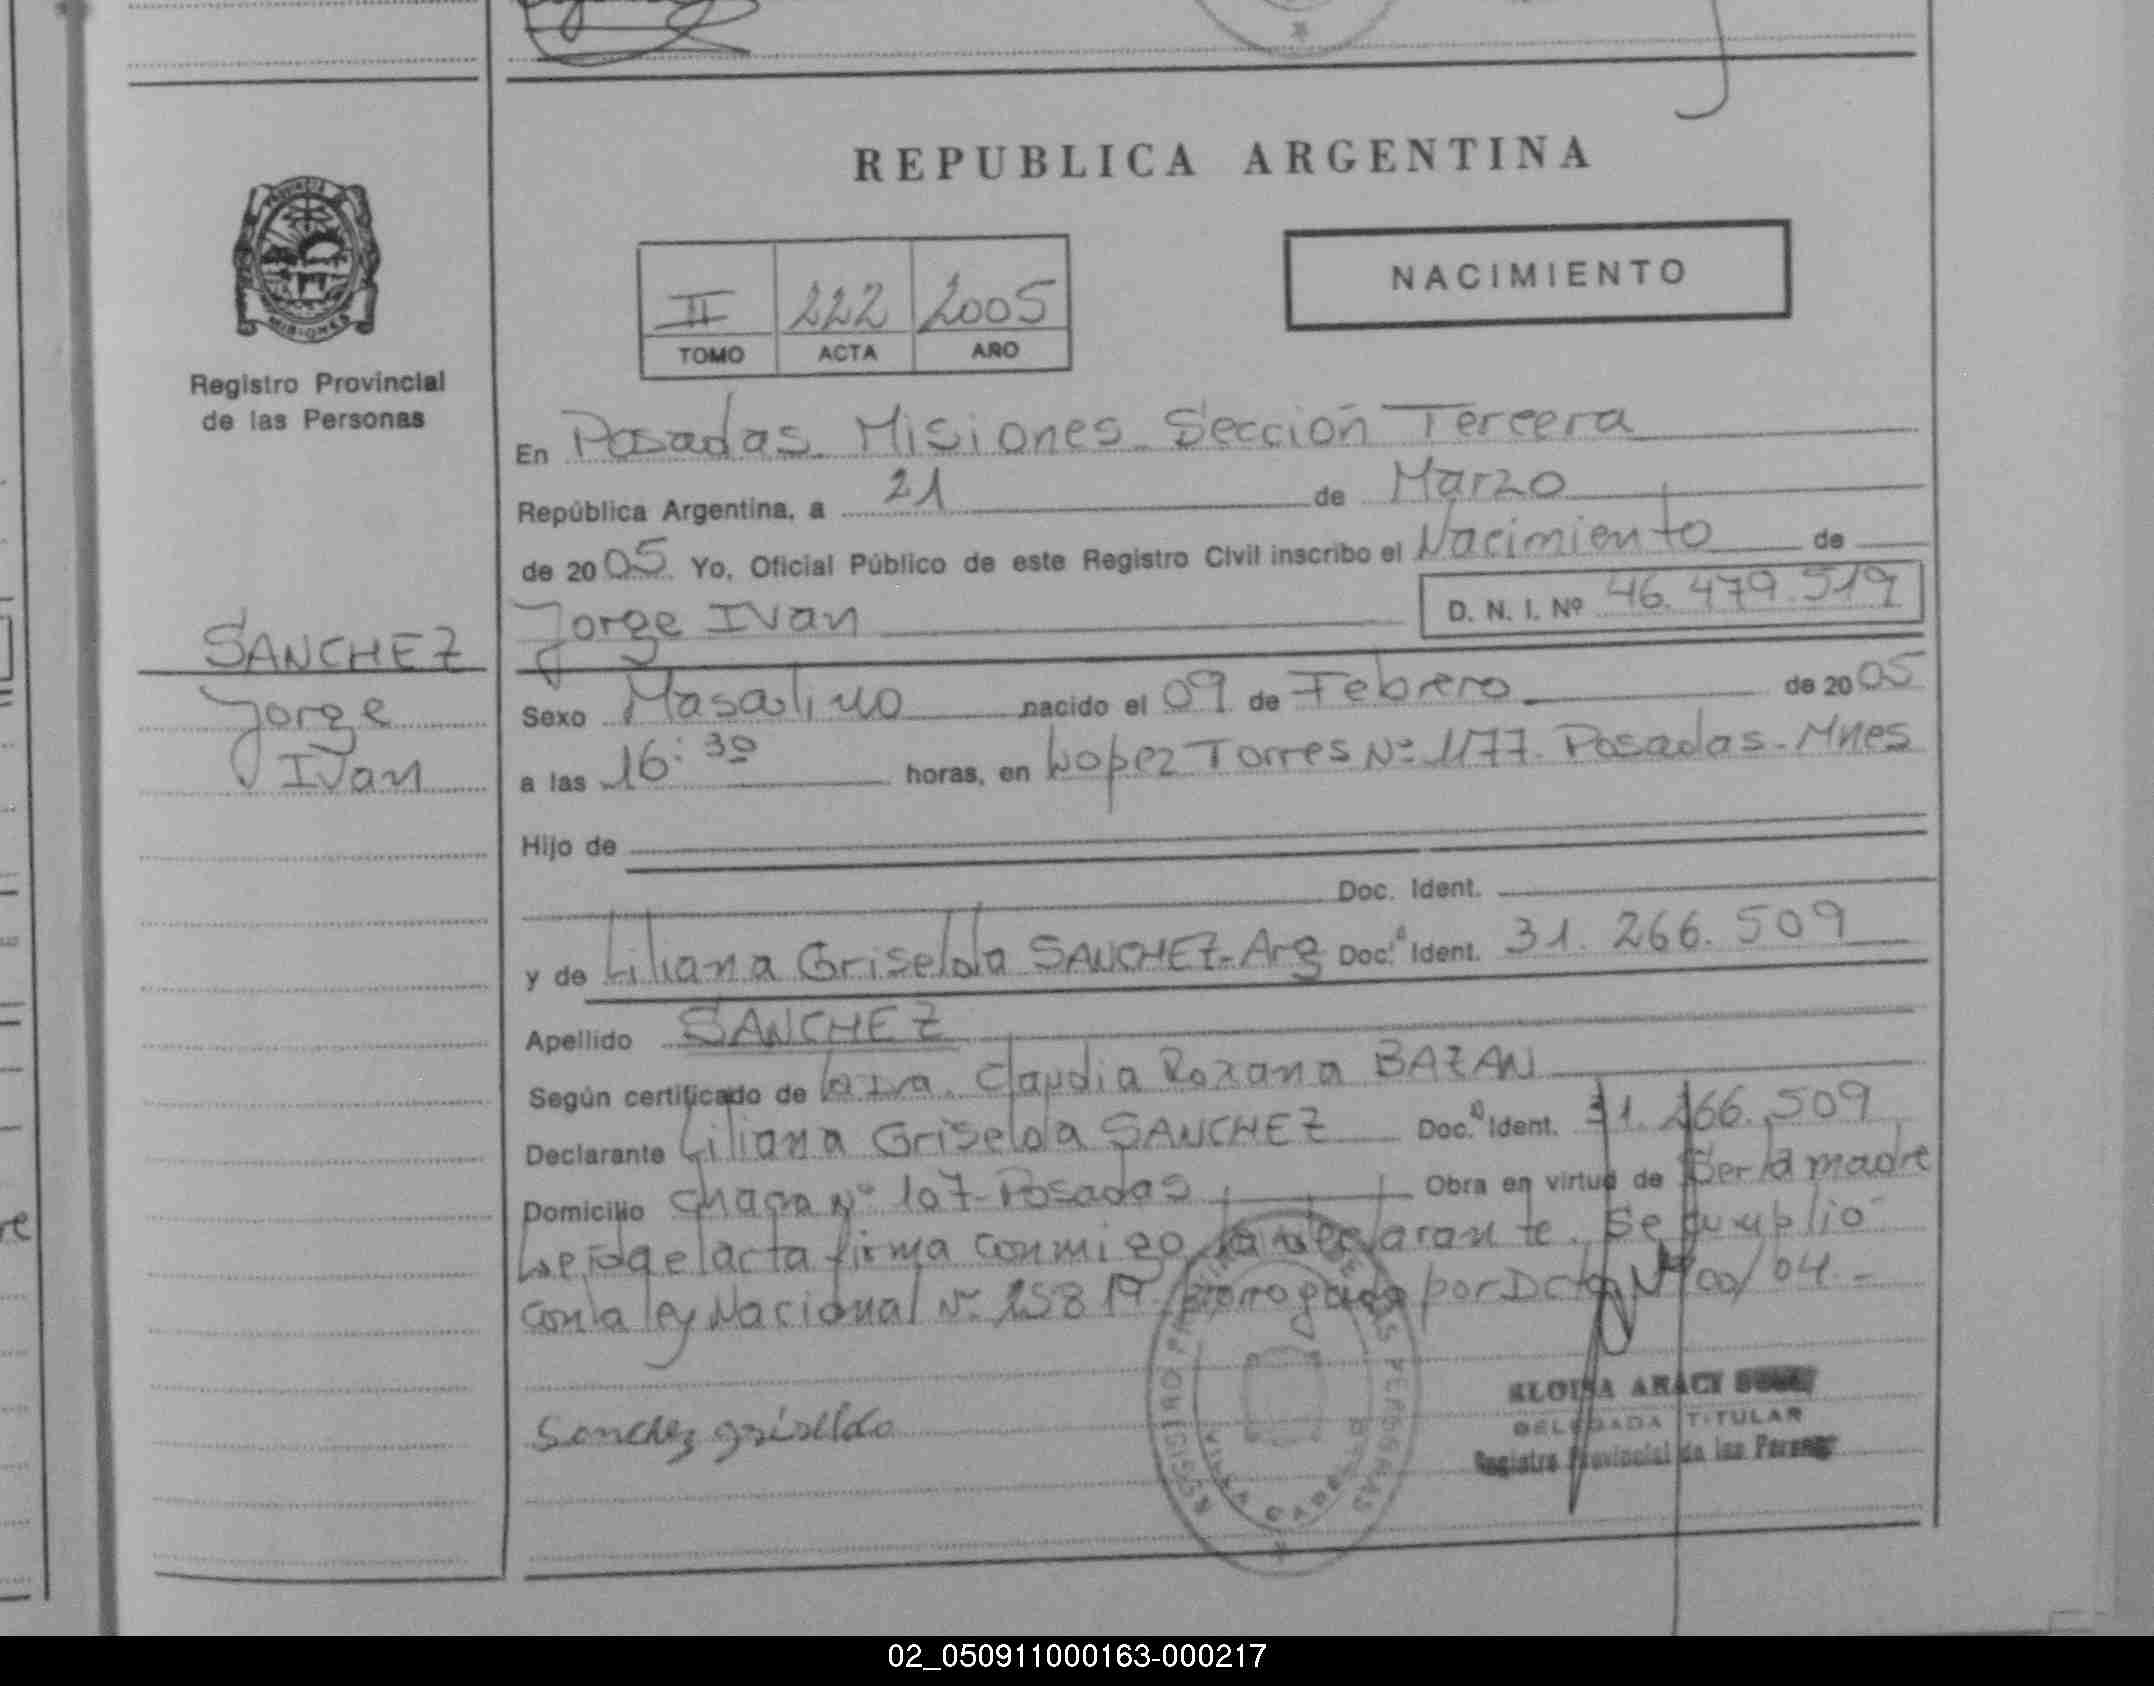 REPUBLICA ARGENTINA
NACIMIENTO
II 222 2005
TOMO ACTA AÑO
PROVINCIA
MISIONES
Registro Provincial
de las Personas
SANCHEZ
Jorge
Ivan
En Posadas Misiones Sección Tercera
República Argentina, a 21 de Marzo
de 2005 Yo, Oficial Público de este Registro Civil inscribo el Nacimiento de
Jorge Ivan D. N. I. Nº 46.479.519
Sexo Masculino nacido el 09 de Febrero de 2005
a las 16:30 horas, en Lopez Torres Nº 1177. Posadas - Mnes
Hijo de
Doc. Ident.
y de Liliana Griselda SANCHEZ - Arg Doc. Ident. 31.266.509
Apellido SANCHEZ
Según certificado de la Dra. Claudia Roxana BAZAN
Declarante Liliana Griselda SANCHEZ Doc. Ident. 31.266.509
Domicilio Chacra Nº 107 - Posadas Obra en virtud de Ser la madre
Leída el acta firma conmigo la declarante. Se cumplió
con la ley Nacional Nº 25819 prorrogada por Dcto Nº /04.-
Sanchez griselda
REGISTRO PROVINCIAL DE LAS PERSONAS
ELOISA ARACI
DELEGADA TITULAR
Registro Provincial de las Personas
02_050911000163-000217